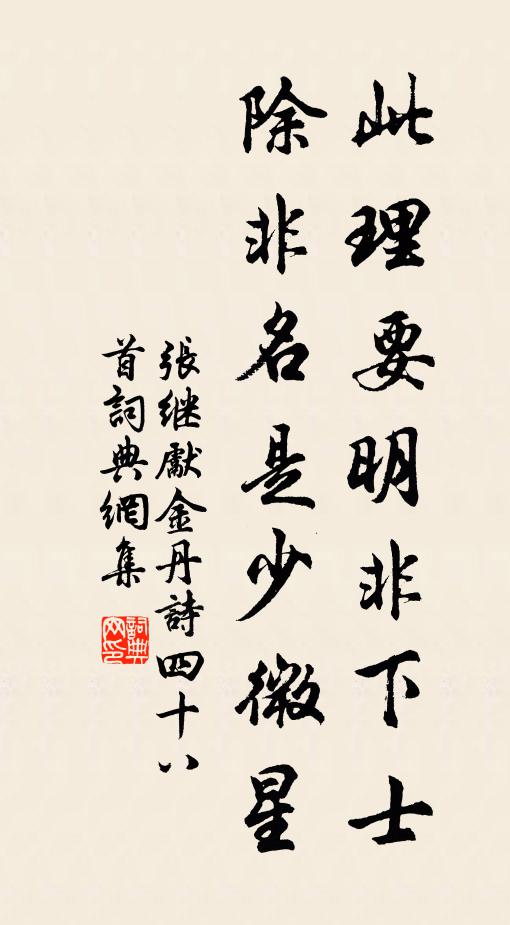 此理要明非下士
除非名是少微星
張继獻金丹詩四十八
首詞典網集
詞典网印